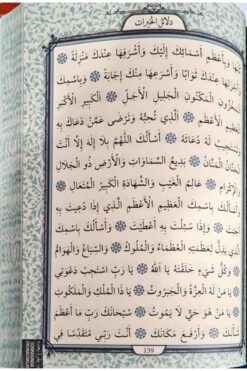 دلائل الخيرات
بِهَا وَبِأَعْظَمِ أَسْمَائِكَ إِلَيْكَ وَأَشْرَفِهَا عِنْدَكَ مَنْزِلَةً
عِنْدَكَ ثَوَابًا وَأَسْرَعِهَا مِنْكَ إِجَابَةً ❁ وَبِاسْمِكَ
الْمَخْزُونِ الْمَكْنُونِ الْجَلِيلِ الْأَجَلِّ ❁ الْكَبِيرِ الْأَكْبَرِ
الْعَظِيمِ الْأَعْظَمِ ❁ الَّذِي تُحِبُّهُ وَتَرْضَى عَمَّنْ دَعَاكَ بِهِ
وَتَسْتَجِيبُ لَهُ دُعَاءَهُ ❁ أَسْأَلُكَ اللَّهُمَّ بِلَا إِلٰهَ إِلَّا أَنْتَ
الْحَنَّانُ الْمَنَّانُ ❁ بَدِيعُ السَّمَاوَاتِ وَالْأَرْضِ ذُو الْجَلَالِ
وَالْإِكْرَامِ ❁ عَالِمُ الْغَيْبِ وَالشَّهَادَةِ الْكَبِيرُ الْمُتَعَالِ ❁
وَأَسْأَلُكَ بِاسْمِكَ الْعَظِيمِ الْأَعْظَمِ الَّذِي إِذَا دُعِيتَ بِهِ
أَجَبْتَ ❁ وَإِذَا سُئِلْتَ بِهِ أَعْطَيْتَ ❁ وَأَسْأَلُكَ بِاسْمِكَ
الَّذِي يَذِلُّ لِعَظَمَتِهِ الْعُظَمَاءُ وَالْمُلُوكُ ❁ وَالسِّبَاعُ وَالْهَوَامُّ
وَكُلُّ شَيْءٍ خَلَقْتَهُ يَا اللهُ ❁ يَا رَبِّ اسْتَجِبْ دَعْوَتِي
يَا مَنْ لَهُ الْعِزَّةُ وَالْجَبَرُوتُ ❁ يَا ذَا الْمُلْكِ وَالْمَلَكُوتِ
يَا مَنْ هُوَ حَيٌّ لَا يَمُوتُ ❁ سُبْحَانَكَ رَبِّ مَا أَعْظَمَ
شَأْنَكَ ❁ وَأَرْفَعَ مَكَانَكَ ❁ أَنْتَ رَبِّي مُتَقَدِّسًا فِي
139